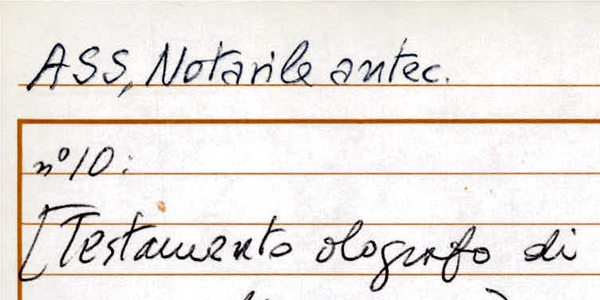 ASS, Notarile antec.
n° 10:
[Testamento olografo di